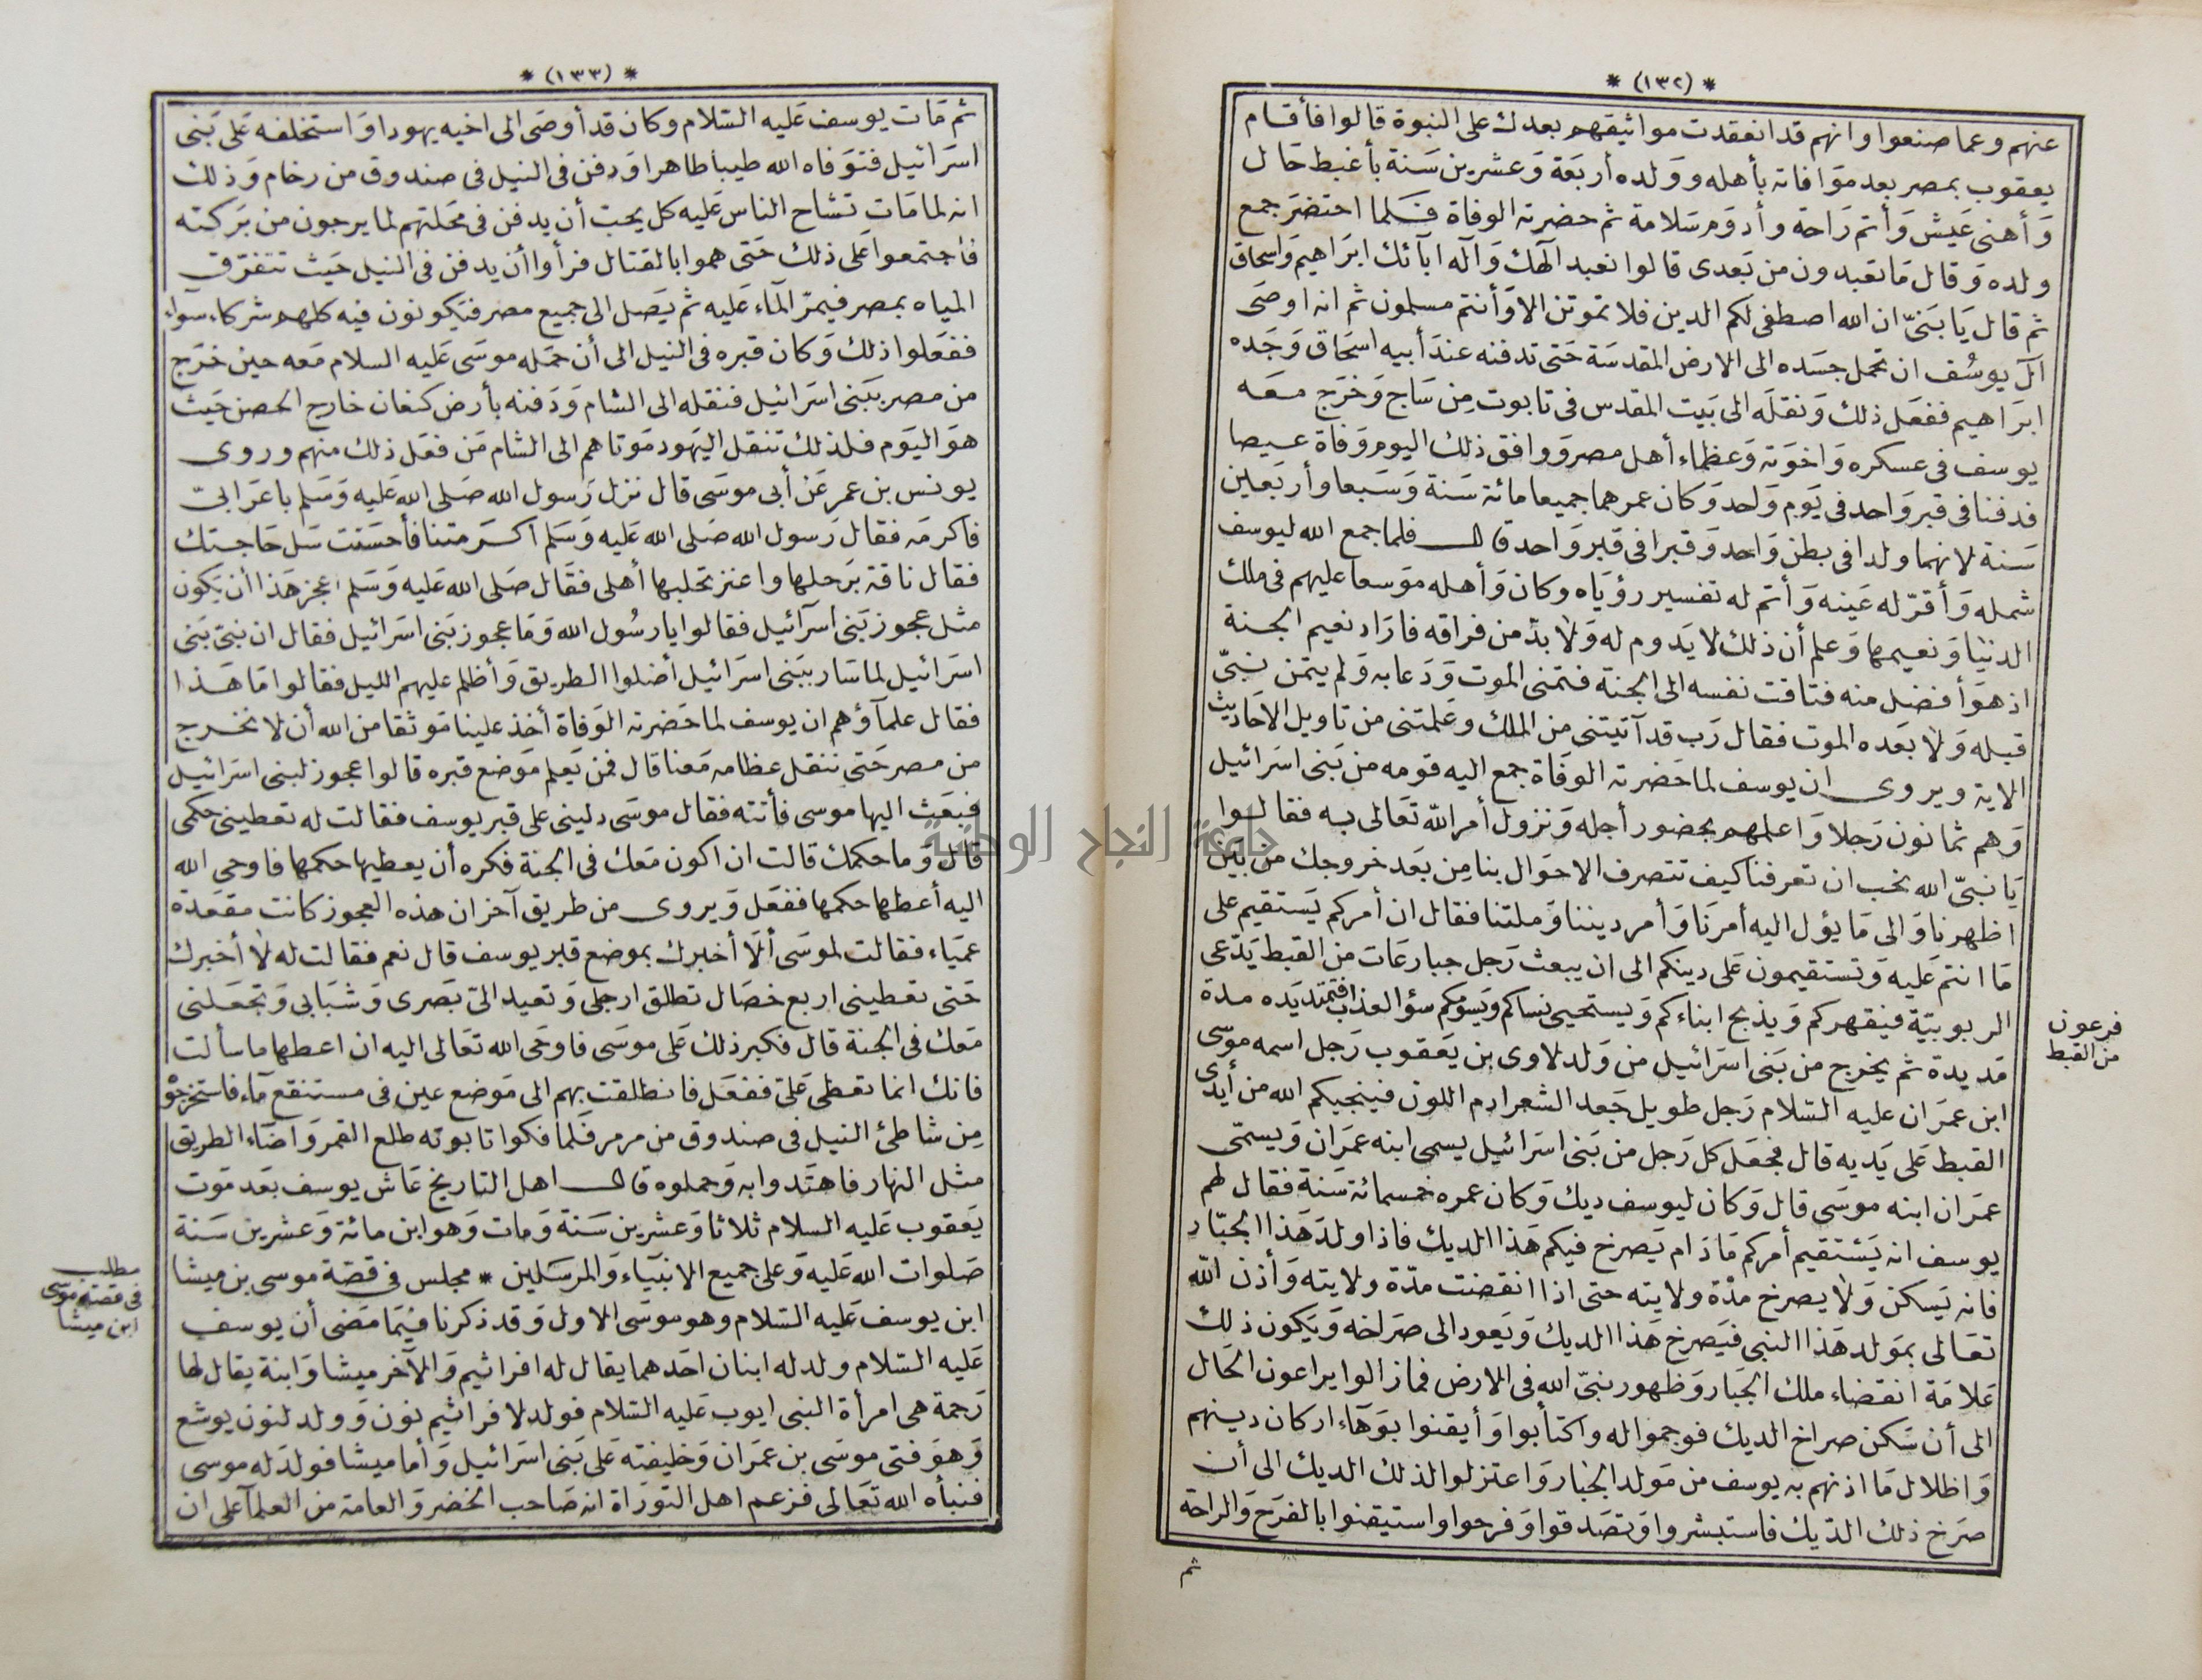 * (١٣٢) *
عنهم وعما صنعوا وانهم قد انعقدت مواثيقهم بعدك على النبوة قالوا فأقام
يعقوب بمصر بعد موَافاته بأهله وَوَلده أربَعَة وَعشرين سَنة بأغبط حَال
وَأهنى عَيش وَأتم رَاحة وأدوَم سَلامة ثم حضرته الوفاة فلما احتضرَ جمع
ولده وَقال مَا تعبدون من بَعدى قالوا نعبد آلهك وَآله ابآئك ابرَاهيم وَاسحاق
ثم قال يَا بَنىّ ان الله اصطفى لكم الدين فلا تموتن الا وَأنتم مسلمون ثم انه اوصَى
الَى يوسُف ان تحمل جسَده الى الارض المقدسَة حَتى تدفنه عندَ أبيه اسحَاق وَجَده
ابرَاهيم ففعَل ذلك وَنقلَه الى بَيت المقدس فى تابوت مِن سَاج وَخرَج معَه
يوسف فى عسكره وَاخوَته وَعظماء أهل مصر وَوافق ذلك اليوم وَفاة عيصا
فدفنا فى قبر وَاحد فى يَوم وَاحد وَكان عمرهما جميعا مائة سَنة وَسَبعا وأربَعين
سَنة لانهما ولدا فى بطن وَاحد وَقبرا فى قبر وَاحد قال فلما جمع الله ليوسف
شمله وَأقرّ له عَينه وَأتم له تفسير رؤيَاه وكان وَأهله موَسعا عليهم فى ملك
الدنيَا وَنعيمها وَعلم أن ذلك لا يَدوم له وَلا بدّ من فراقه فارَاد نعيم الجنة
اذ هوَ أفضل منه فتاقت نفسه الى الجنة فتمنى الموت وَدَعا به وَلم يتمن نبىّ
قبله وَلا بعَده الموت فقال رَب قد آتيتنى من الملك وعَلمتنى من تاويل الاحَاديث
الاية ويروى ان يوسف لما حَضرته الوفَاة جمع اليه قومه من بَنى اسرَائيل
وَهم ثمانون رَجلا وَاعلمهم بحضور أجله وَنزول أمر الله تعَالى به فقالوا
يَا نبىّ الله نحب ان تعرفنا كيف تتصرف الاحوَال بنا مِن بعَد خروجك من بَين
اظهرنا وَالى مَا يؤل اليه أمرنَا وَأمر ديننا وَملتنا فقال ان أمركم يَستقيم على
مَا انتم عَليه وَتستقيمون عَلى دينكم الى ان يبعث رَجل جبار عَات من القبط يَدّعى
الربوبيّة فيقهركم وَيذبح ابناءكم وَيستحيى نساكم ويَسومكم سؤ العذاب فتمتد يَده مدة
مَديدة ثم يخرج من بَنى اسرَائيل من وَلد لاوى بن يَعقوب رَجل اسمه موسى
ابن عمرَان عليه السّلام رَجل طويل جَعد الشعر ادم اللون فينجيكم الله من أيدى
القبط عَلى يَديه قال فجعَل كل رَجل من بَنى اسرَائيل يسمى ابنه عمرَان وَيسمّى
عمرَان ابنه موسَى قال وَكان ليوسف ديك وَكان عمره خمسمائة سَنة فقال لهم
يوسف انه يَسْتقيم أمركم مَادَام يَصرخ فيكم هَذا الديك فاذا ولدَ هَذا الجبّار
فانه يَسكن وَلا يصرخ مدّة ولايته حتى اذا انقضت مدّة ولايته وَأذن الله
تعَالى بموَلد هَذا النبى فيَصرخ هَذا الديك وَيَعود الى صَراخه وَيَكون ذلك
عَلامَة انقضاء ملك الجَبار وَظهور نبىّ الله فى الارض فمازالوا يراعون الحَال
الى أن سَكن صراخ الديك فوجموا له واكتأبوا وَأيقنوا بوَهَاء اركان دينهم
وَاظلال مَا اذنهم به يوسف من مَولد الجبَار وَاعتزلوا لذلك الديك الى أن
صرَخ ذلك الدّيك فاستبشروا وَتصَدقوا وَفرحوا واستيقنوا بالفرَج وَالراحة
ثم
فرعون
من القبط
* (١٣٣) *
ثم مَات يوسف عَليه السّلام وكان قد أوصَى الى اخيه يهودا وَاستخلفه عَلى بَنى
اسرَائيل فتوَفاه الله طيبا طاهرا وَدفن فى النيل فى صندوق من رخام وَذلك
انه لما مَات تشاح الناس عَليه كل يحبّ أن يدفن فى محَلتهم لما يرجون من بَركته
فاجتمعوا عَلى ذلك حَتى هموا بالقتال فرأوا أن يدفن فى النيل حَيث تتفرّق
المياه بمصر فيمرّ المَاء عَليه ثم يَصَل الى جميع مصر فيَكونون فيه كلهم شركاء سوَاء
ففعَلوا ذلك وَكان قبره فى النيل الى أن حمَله موسَى عَليه السلام مَعه حين خرَج
من مصر ببَنى اسرَائيل فنقله الى الشام وَدَفنه بأرض كنعان خارج الحصن حَيث
هوَ اليَوم فلذلك تنقل اليَهود مَوتاهم الى الشام مَن فعَل ذلك منهم وروى
يونس بن عمر عَن أبى موسَى قال نزل رَسول الله صَلى الله عَليه وَسَلم باعرَابىّ
فاكرمَه فقال رَسول الله صَلى الله عَليه وَسَلم اكرَمتنا فأحسَنت سَل حَاجتك
فقال ناقة برَحلها واعنز تحلبها أهلى فقَال صَلى الله عَليه وَسَلم اعجز هَذا أن يَكون
مثل عجوز بَنى اسرَآئيل فقالوا يا رسُول الله وَمَا عجوز بَنى اسرَائيل فقال ان نبىّ بَنى
اسرَائيل لما سَار ببَنى اسرَائيل أضلوا الطريق وَأظلم عليهم الليل فقالوا مَا هَذا
فقال علمآؤهم ان يوسف لما حَضرته الوَفاة أخذ علينا مَوثقا من الله أن لا نخرج
من مصر حَتى ننقل عظامه مَعنا قال فمن يَعلم مَوضع قبره قالوا عجوز لبنى اسرَائيل
فبعَث اليها موسى فأتته فقال موسَى دلينى على قبر يوسف فقالت له تعطينى حكمى
قال وَما حكمك قالت ان اكون مَعك فى الجنة فكره أن يعطيها حكمها فاوحى الله
اليه أعطها حكمها ففعَل وَيروى من طريق آخر ان هذه العجوز كانت مقعَدة
عميَاء فقالت لموسَى ألا أخبرك بموضع قبر يوسف قال نعم فقالت له لا أخبرك
حَتى تعطينى اربع خصَال تطلق ارجلى وَتعيد الىّ بَصرى وَشبَابى وَتجعَلنى
مَعك فى الجنة قال فكبر ذلك عَلى موسَى فاوحَى الله تعَالى اليه ان اعطها ماسألت
فانك انما تعطى عَلىّ ففعَل فانطلقت بهم الى مَوضع عين فى مستنقع مَاء فاستخرجوه
مِن شاطئ النيل فى صندوق من مرمر فلَما فكوا تابوته طلع القمر وَاضَاء الطريق
مثل النهار فاهتَدوا به وَحملوه قال اهل التاريخ عَاش يوسف بعَد مَوت
يَعقوب عَليه السلام ثلاثا وَعشرين سَنة وَمات وَهو ابن مائة وَعشرين سَنة
صَلوات الله عَليه وَعلى جميع الانبيَاء وَالمرسَلين * مجلس فى قصّة موسى بن ميشا
ابن يوسف عَليه السّلام وهو موسَى الاول وَقد ذكرنا فيمَا مَضى أن يوسف
عَليه السّلام ولد له ابنان احَدهما يقال له افراثيم وَالاَخر ميشا وَابنة يقال لها
رَحمة هى امرأة النبى ايوب عَليه السّلام فولد لافراثيم نون وَوَلد لنون يوشع
وَهوَ فتى موسَى بن عمرَان وَخليفته عَلى بَنى اسرَائيل وَأما ميشا فولدَ له موسى
فنبأه الله تعَالى فزعم اهل التورَاة انه صَاحب الخضر وَالعامة من العلمآ على ان
مطلب
فى قصّة موسى
ابن ميشا
جامعة النجاح الوطنية